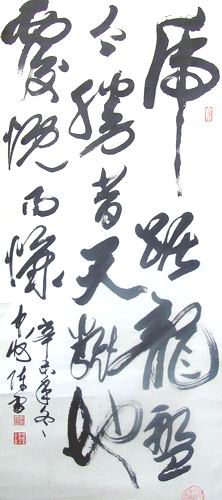 虎踞龍盤
今勝昔天翻地
覆慨而慷
辛未年冬